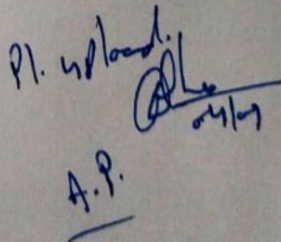 Pl. upload.
04/07
A.P.